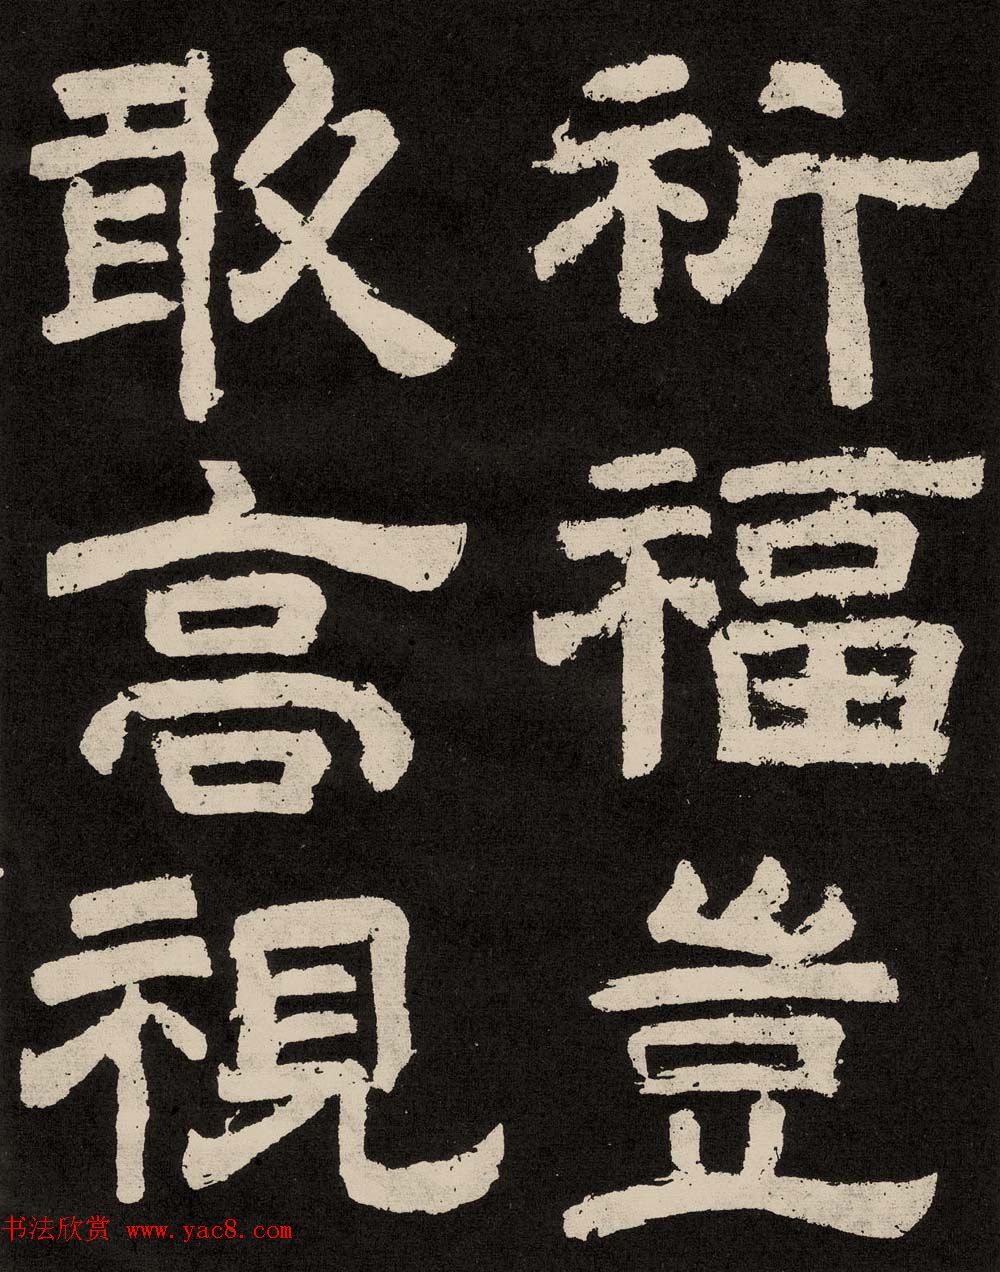 祈福豈
敢高視
书法欣赏 www.yac8.com